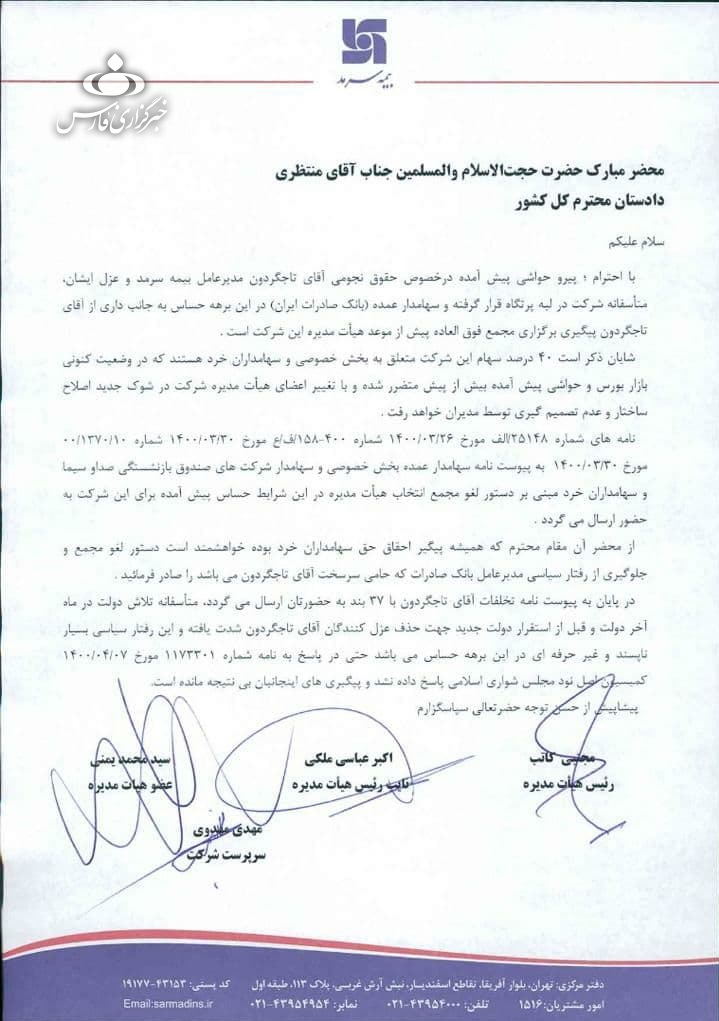 بیمه سرمد
خبرگزاری فارس
محضر مبارک حضرت حجت‌الاسلام والمسلمین جناب آقای منتظری
دادستان محترم کل کشور
سلام علیکم
با احترام ؛ پیرو حواشی پیش آمده درخصوص حقوق نجومی آقای تاجگردون مدیرعامل بیمه سرمد و عزل ایشان،
متأسفانه شرکت در لبه پرتگاه قرار گرفته و سهامدار عمده (بانک صادرات ایران) در این برهه حساس به جانب داری از آقای
تاجگردون پیگیری برگزاری مجمع فوق العاده پیش از موعد هیأت مدیره این شرکت است .
شایان ذکر است ۴۰ درصد سهام این شرکت متعلق به بخش خصوصی و سهامداران خرد هستند که در وضعیت کنونی
بازار بورس و حواشی پیش آمده بیش از پیش متضرر شده و با تغییر اعضای هیأت مدیره شرکت در شوک جدید اصلاح
ساختار و عدم تصمیم گیری توسط مدیران خواهد رفت .
نامه های شماره ۲۵۱۴۸/الف مورخ ۱۴۰۰/۰۳/۲۶ شماره ۴۰۰-۱۵۸/ف/ع مورخ ۱۴۰۰/۰۳/۳۰ شماره ۰۰/۱۳۷۰/۱۰
مورخ ۱۴۰۰/۰۳/۳۰ به پیوست نامه سهامدار عمده بخش خصوصی و سهامدار شرکت های صندوق بازنشستگی صداو سیما
و سهامداران خرد مبنی بر دستور لغو مجمع انتخاب هیأت مدیره در این شرایط حساس پیش آمده برای این شرکت به
حضور ارسال می گردد .
از محضر آن مقام محترم که همیشه پیگیر احقاق حق سهامداران خرد بوده خواهشمند است دستور لغو مجمع و
جلوگیری از رفتار سیاسی مدیرعامل بانک صادرات که حامی سرسخت آقای تاجگردون می باشد را صادر فرمائید .
در پایان به پیوست نامه تخلفات آقای تاجگردون با ۳۷ بند به حضورتان ارسال می گردد، متأسفانه تلاش دولت در ماه
آخر دولت و قبل از استقرار دولت جدید جهت حذف عزل کنندگان آقای تاجگردون شدت یافته و این رفتار سیاسی بسیار
ناپسند و غیر حرفه ای در این برهه حساس می باشد حتی در پاسخ به نامه شماره ۱۱۷۳۳۰۱ مورخ ۱۴۰۰/۰۴/۰۷
کمیسیون اصل نود مجلس شورای اسلامی پاسخ داده نشد و پیگیری های اینجانبان بی نتیجه مانده است.
پیشاپیش از حسن توجه حضرتعالی سپاسگزارم
مجتبی کاتب
رئیس هیأت مدیره
اکبر عباسی ملکی
نایب رئیس هیأت مدیره
سید محمد یمنی
عضو هیأت مدیره
مهدی مهدوی
سرپرست شرکت
دفتر مرکزی: تهران، بلوار آفریقا، تقاطع اسفندیار، نبش آرش غربی، پلاک ۱۱۳، طبقه اول کد پستی: ۴۳۱۵۳-۱۹۱۷۷
امور مشتریان: ۱۵۱۶ تلفن: ۴۳۹۵۴۰۰۰-۰۲۱ نمابر: ۴۳۹۵۴۹۵۴-۰۲۱ Email:sarmadins.ir